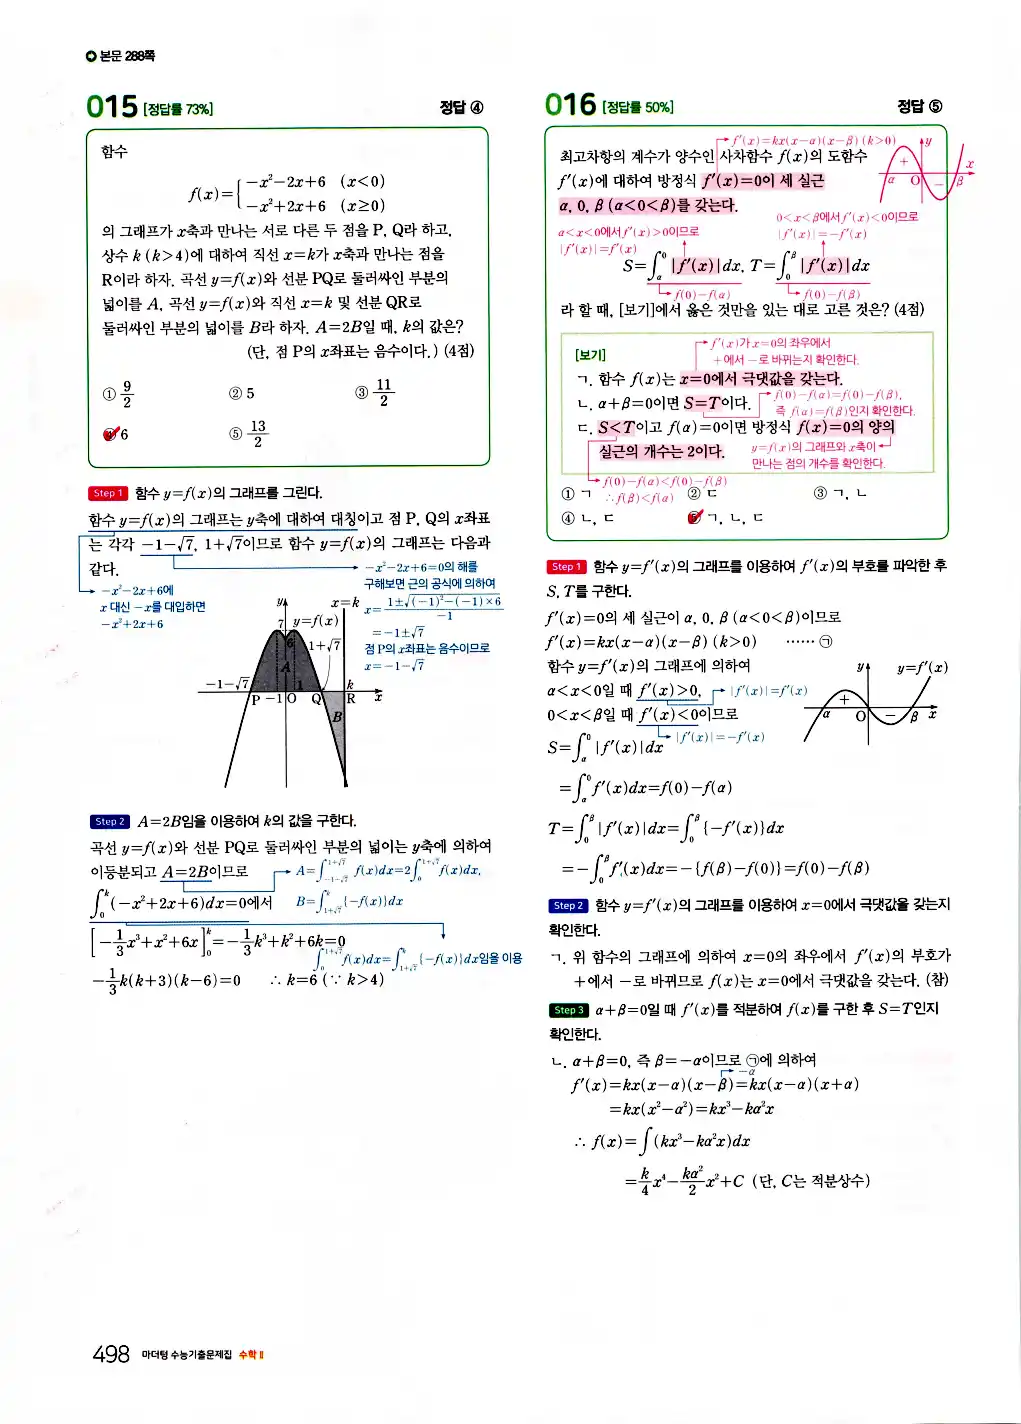 본문 288쪽
015 [정답률 73%] 정답 ④
함수
f(x)={ -x²-2x+6 (x<0)
-x²+2x+6 (x≥0)
의 그래프가 x축과 만나는 서로 다른 두 점을 P, Q라 하고,
상수 k (k>4)에 대하여 직선 x=k가 x축과 만나는 점을
R이라 하자. 곡선 y=f(x)와 선분 PQ로 둘러싸인 부분의
넓이를 A, 곡선 y=f(x)와 직선 x=k 및 선분 QR로
둘러싸인 부분의 넓이를 B라 하자. A=2B일 때, k의 값은?
(단, 점 P의 x좌표는 음수이다.) (4점)
① 9/2 ② 5 ③ 11/2
④ 6 ⑤ 13/2
Step 1 함수 y=f(x)의 그래프를 그린다.
함수 y=f(x)의 그래프는 y축에 대하여 대칭이고 점 P, Q의 x좌표
는 각각 -1-√7, 1+√7이므로 함수 y=f(x)의 그래프는 다음과
같다.
-x²-2x+6에
x 대신 -x를 대입하면
-x²+2x+6
-x²-2x+6=0의 해를
구해보면 근의 공식에 의하여
x=(1±√((-1)²-(-1)×6))/(-1)
=-1±√7
점 P의 x좌표는 음수이므로
x=-1-√7
y x=k
7 y=f(x)
6 1+√7
A
-1-√7 1 k
P -1 O Q R x
B
Step 2 A=2B임을 이용하여 k의 값을 구한다.
곡선 y=f(x)와 선분 PQ로 둘러싸인 부분의 넓이는 y축에 의하여
이등분되고 A=2B이므로
A=∫_{-1-√7}^{1+√7} f(x)dx=2∫_0^{1+√7} f(x)dx,
B=∫_{1+√7}^k {-f(x)}dx
∫_0^k (-x²+2x+6)dx=0에서
[-1/3x³+x²+6x]_0^k=-1/3k³+k²+6k=0
∫_0^{1+√7} f(x)dx=∫_{1+√7}^k {-f(x)}dx임을 이용
-1/3k(k+3)(k-6)=0 ∴ k=6 (∵ k>4)
016 [정답률 50%] 정답 ⑤
f'(x)=kx(x-α)(x-β) (k>0)
최고차항의 계수가 양수인 사차함수 f(x)의 도함수
f'(x)에 대하여 방정식 f'(x)=0이 세 실근
α, 0, β (α<0<β)를 갖는다.
y
+ x
α O - β
0<x<β에서 f'(x)<0이므로
|f'(x)|=-f'(x)
α<x<0에서 f'(x)>0이므로
|f'(x)|=f'(x)
S=∫_α^0 |f'(x)|dx, T=∫_0^β |f'(x)|dx
f(0)-f(α) f(0)-f(β)
라 할 때, [보기]에서 옳은 것만을 있는 대로 고른 것은? (4점)
[보기]
f'(x)가 x=0의 좌우에서
+에서 -로 바뀌는지 확인한다.
ㄱ. 함수 f(x)는 x=0에서 극댓값을 갖는다.
ㄴ. α+β=0이면 S=T이다.
f(0)-f(α)=f(0)-f(β),
즉 f(α)=f(β)인지 확인한다.
ㄷ. S<T이고 f(α)=0이면 방정식 f(x)=0의 양의
실근의 개수는 2이다.
y=f(x)의 그래프와 x축이
만나는 점의 개수를 확인한다.
f(0)-f(α)<f(0)-f(β)
∴ f(β)<f(α)
① ㄱ ② ㄷ ③ ㄱ, ㄴ
④ ㄴ, ㄷ ⑤ ㄱ, ㄴ, ㄷ
Step 1 함수 y=f'(x)의 그래프를 이용하여 f'(x)의 부호를 파악한 후
S, T를 구한다.
f'(x)=0의 세 실근이 α, 0, β (α<0<β)이므로
f'(x)=kx(x-α)(x-β) (k>0) ······ ㉠
함수 y=f'(x)의 그래프에 의하여
α<x<0일 때 f'(x)>0, |f'(x)|=f'(x)
0<x<β일 때 f'(x)<0이므로
|f'(x)|=-f'(x)
y y=f'(x)
+
α O - β x
S=∫_α^0 |f'(x)|dx
=∫_α^0 f'(x)dx=f(0)-f(α)
T=∫_0^β |f'(x)|dx=∫_0^β {-f'(x)}dx
=-∫_0^β f'(x)dx=-{f(β)-f(0)}=f(0)-f(β)
Step 2 함수 y=f'(x)의 그래프를 이용하여 x=0에서 극댓값을 갖는지
확인한다.
ㄱ. 위 함수의 그래프에 의하여 x=0의 좌우에서 f'(x)의 부호가
+에서 -로 바뀌므로 f(x)는 x=0에서 극댓값을 갖는다. (참)
Step 3 α+β=0일 때 f'(x)를 적분하여 f(x)를 구한 후 S=T인지
확인한다.
ㄴ. α+β=0, 즉 β=-α이므로 ㉠에 의하여
-α
f'(x)=kx(x-α)(x-β)=kx(x-α)(x+α)
=kx(x²-α²)=kx³-kα²x
∴ f(x)=∫(kx³-kα²x)dx
=k/4x⁴-kα²/2x²+C (단, C는 적분상수)
498 마더텅 수능기출문제집 수학 II